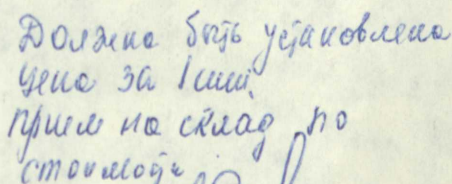 Должна быть установлена
цена за 1 шт.
прием на склад по
стоимости